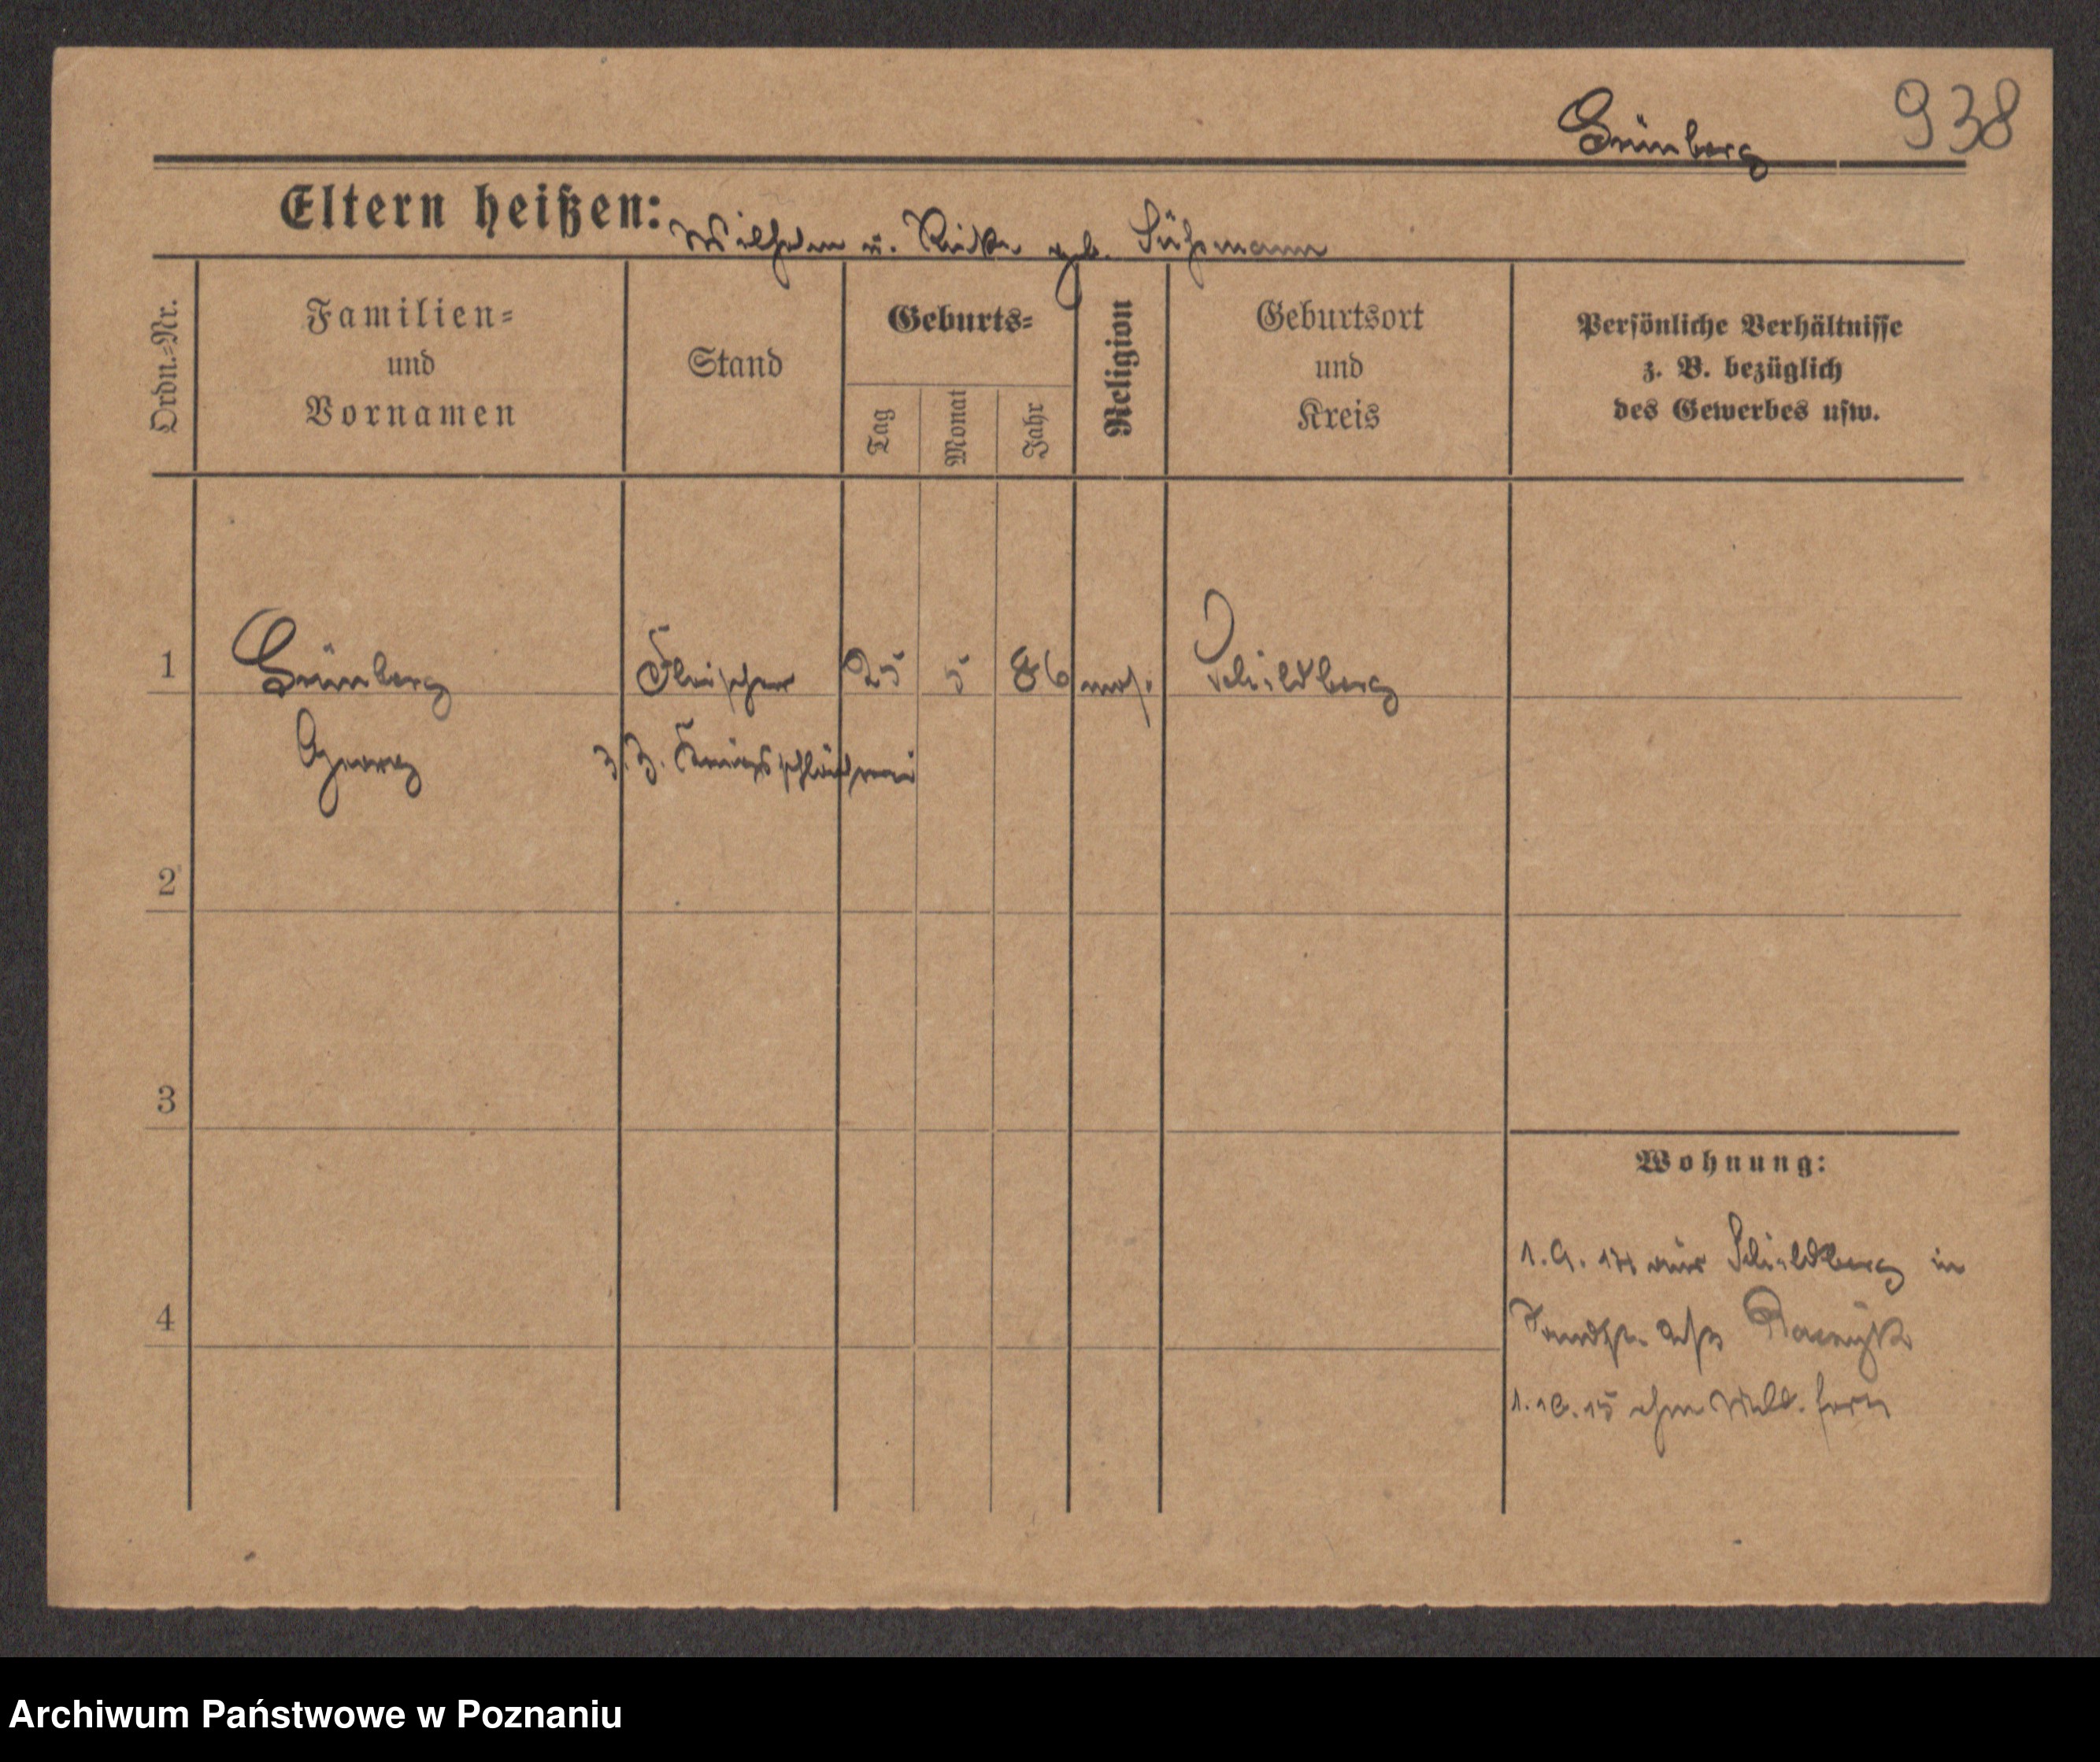 938
Grünberg
Eltern heißen: Wilhelm u. Rieke geb. Sühsmann
Ordn.-Nr.
Familien-
und
Vornamen
Stand
Geburts-
Tag
Monat
Jahr
Religion
Geburtsort
und
Kreis
Persönliche Verhältnisse
z. B. bezüglich
des Gewerbes usw.
1 Grünberg Fleischer 25 5 86 mos. Schildberg
Georg z. Z.
2
3
4
Wohnung:
1.9.14 aus Schildberg in
1.10.15 ohne Meld. fort
Archiwum Państwowe w Poznaniu